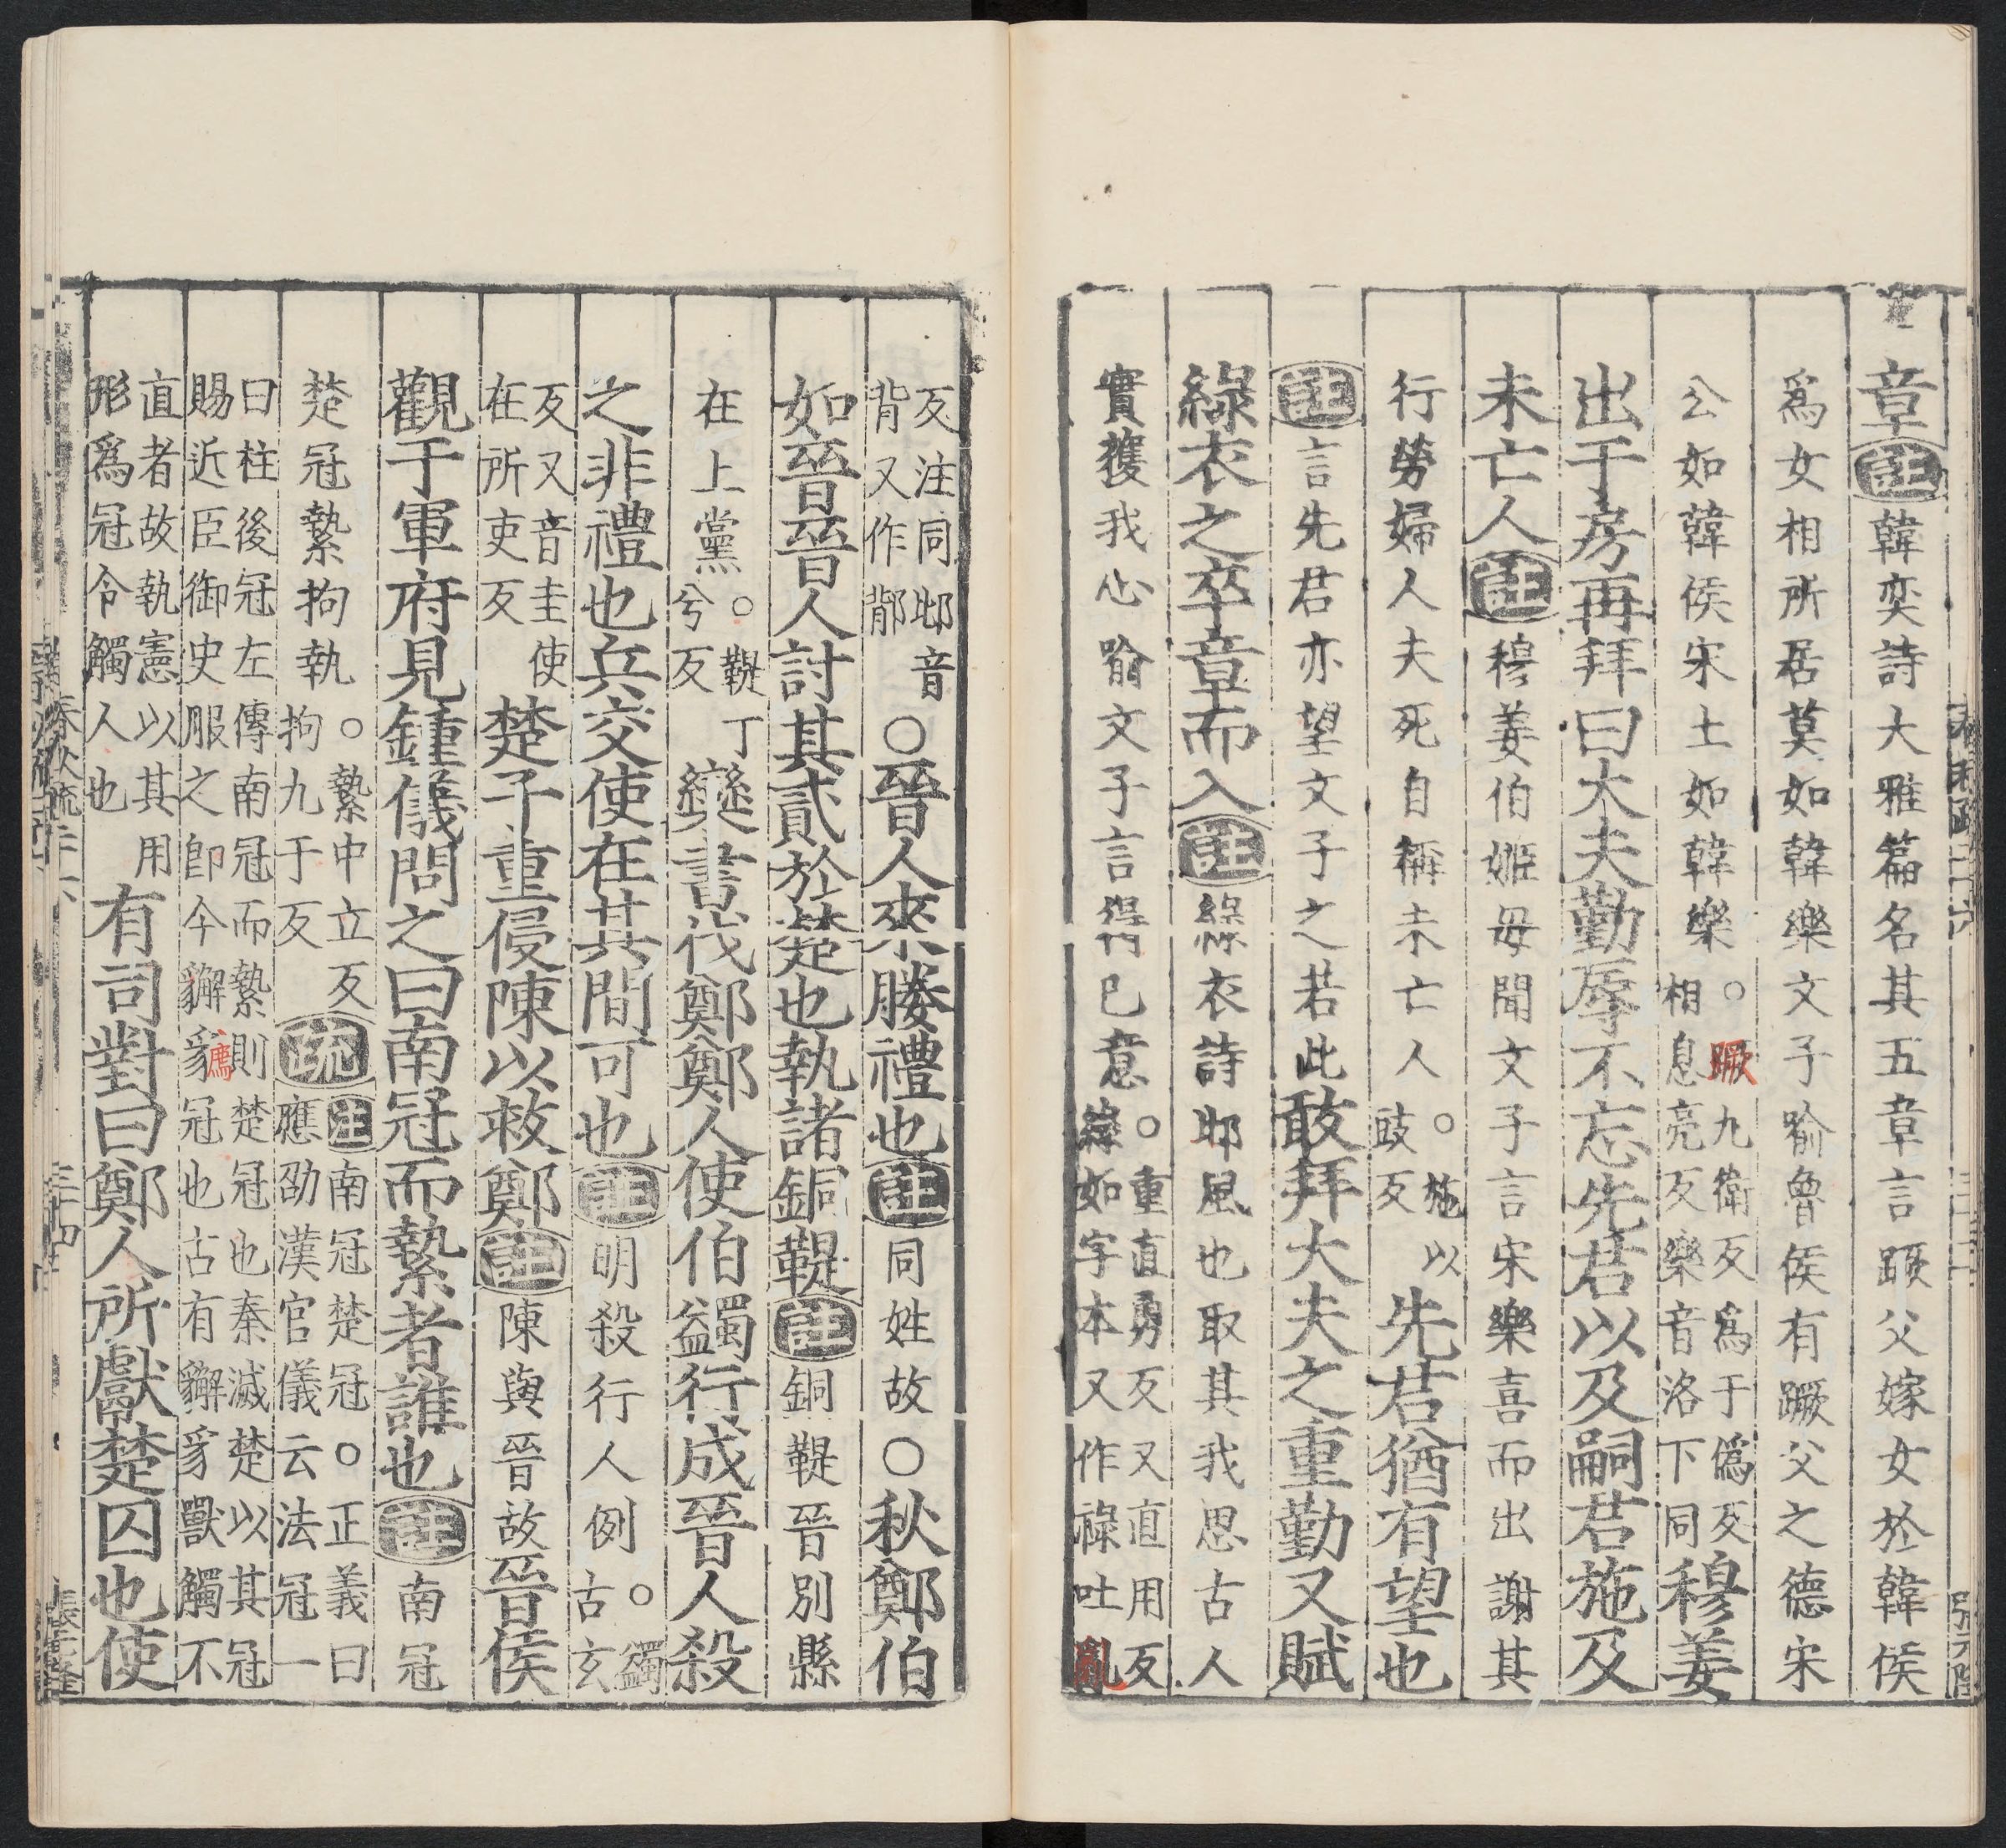 章註韓奕詩大雅篇名其五章言蹶父嫁女於韓侯
爲女相所居莫如韓樂文子喻魯侯有蹶父之德宋
公如韓侯宋土如韓樂○蹶九衛反爲于僞反
相息亮反樂音洛下同穆姜
出于房再拜曰大夫勤辱不忘先君以及嗣君施及
未亡人註穆姜伯姬母聞文子言宋樂喜而出謝其
行勞婦人夫死自稱未亡人○施以
豉反先君猶有望也
註言先君亦望文子之若此敢拜大夫之重勤又賦
綠衣之卒章而入註綠衣詩邶風也取其我思古人
實獲我心喻文子言得巳意○重直勇反又直用反
綠如字本又作祿吐亂
反注同邶音
背又作鄁○晉人來媵禮也註同姓故○秋鄭伯
如晉晉人討其貳於楚也執諸銅鞮註銅鞮晉別縣
在上黨○鞮丁
兮反欒書伐鄭鄭人使伯蠲行成晉人殺
之非禮也兵交使在其間可也註明殺行人例○蠲
古玄
反又音圭使
在所吏反楚子重侵陳以救鄭註陳與晉故晉侯
觀于軍府見鍾儀問之曰南冠而縶者誰也註南冠
楚冠縶拘執○縶中立反
拘九于反疏注南冠楚冠○正義曰
應劭漢官儀云法冠一
曰柱後冠左傳南冠而縶則楚冠也秦滅楚以其冠
賜近臣御史服之卽今獬豸廌冠也古有獬豸獸觸不
直者故執憲以其用
形爲冠令觸人也有司對曰鄭人所獻楚囚也使